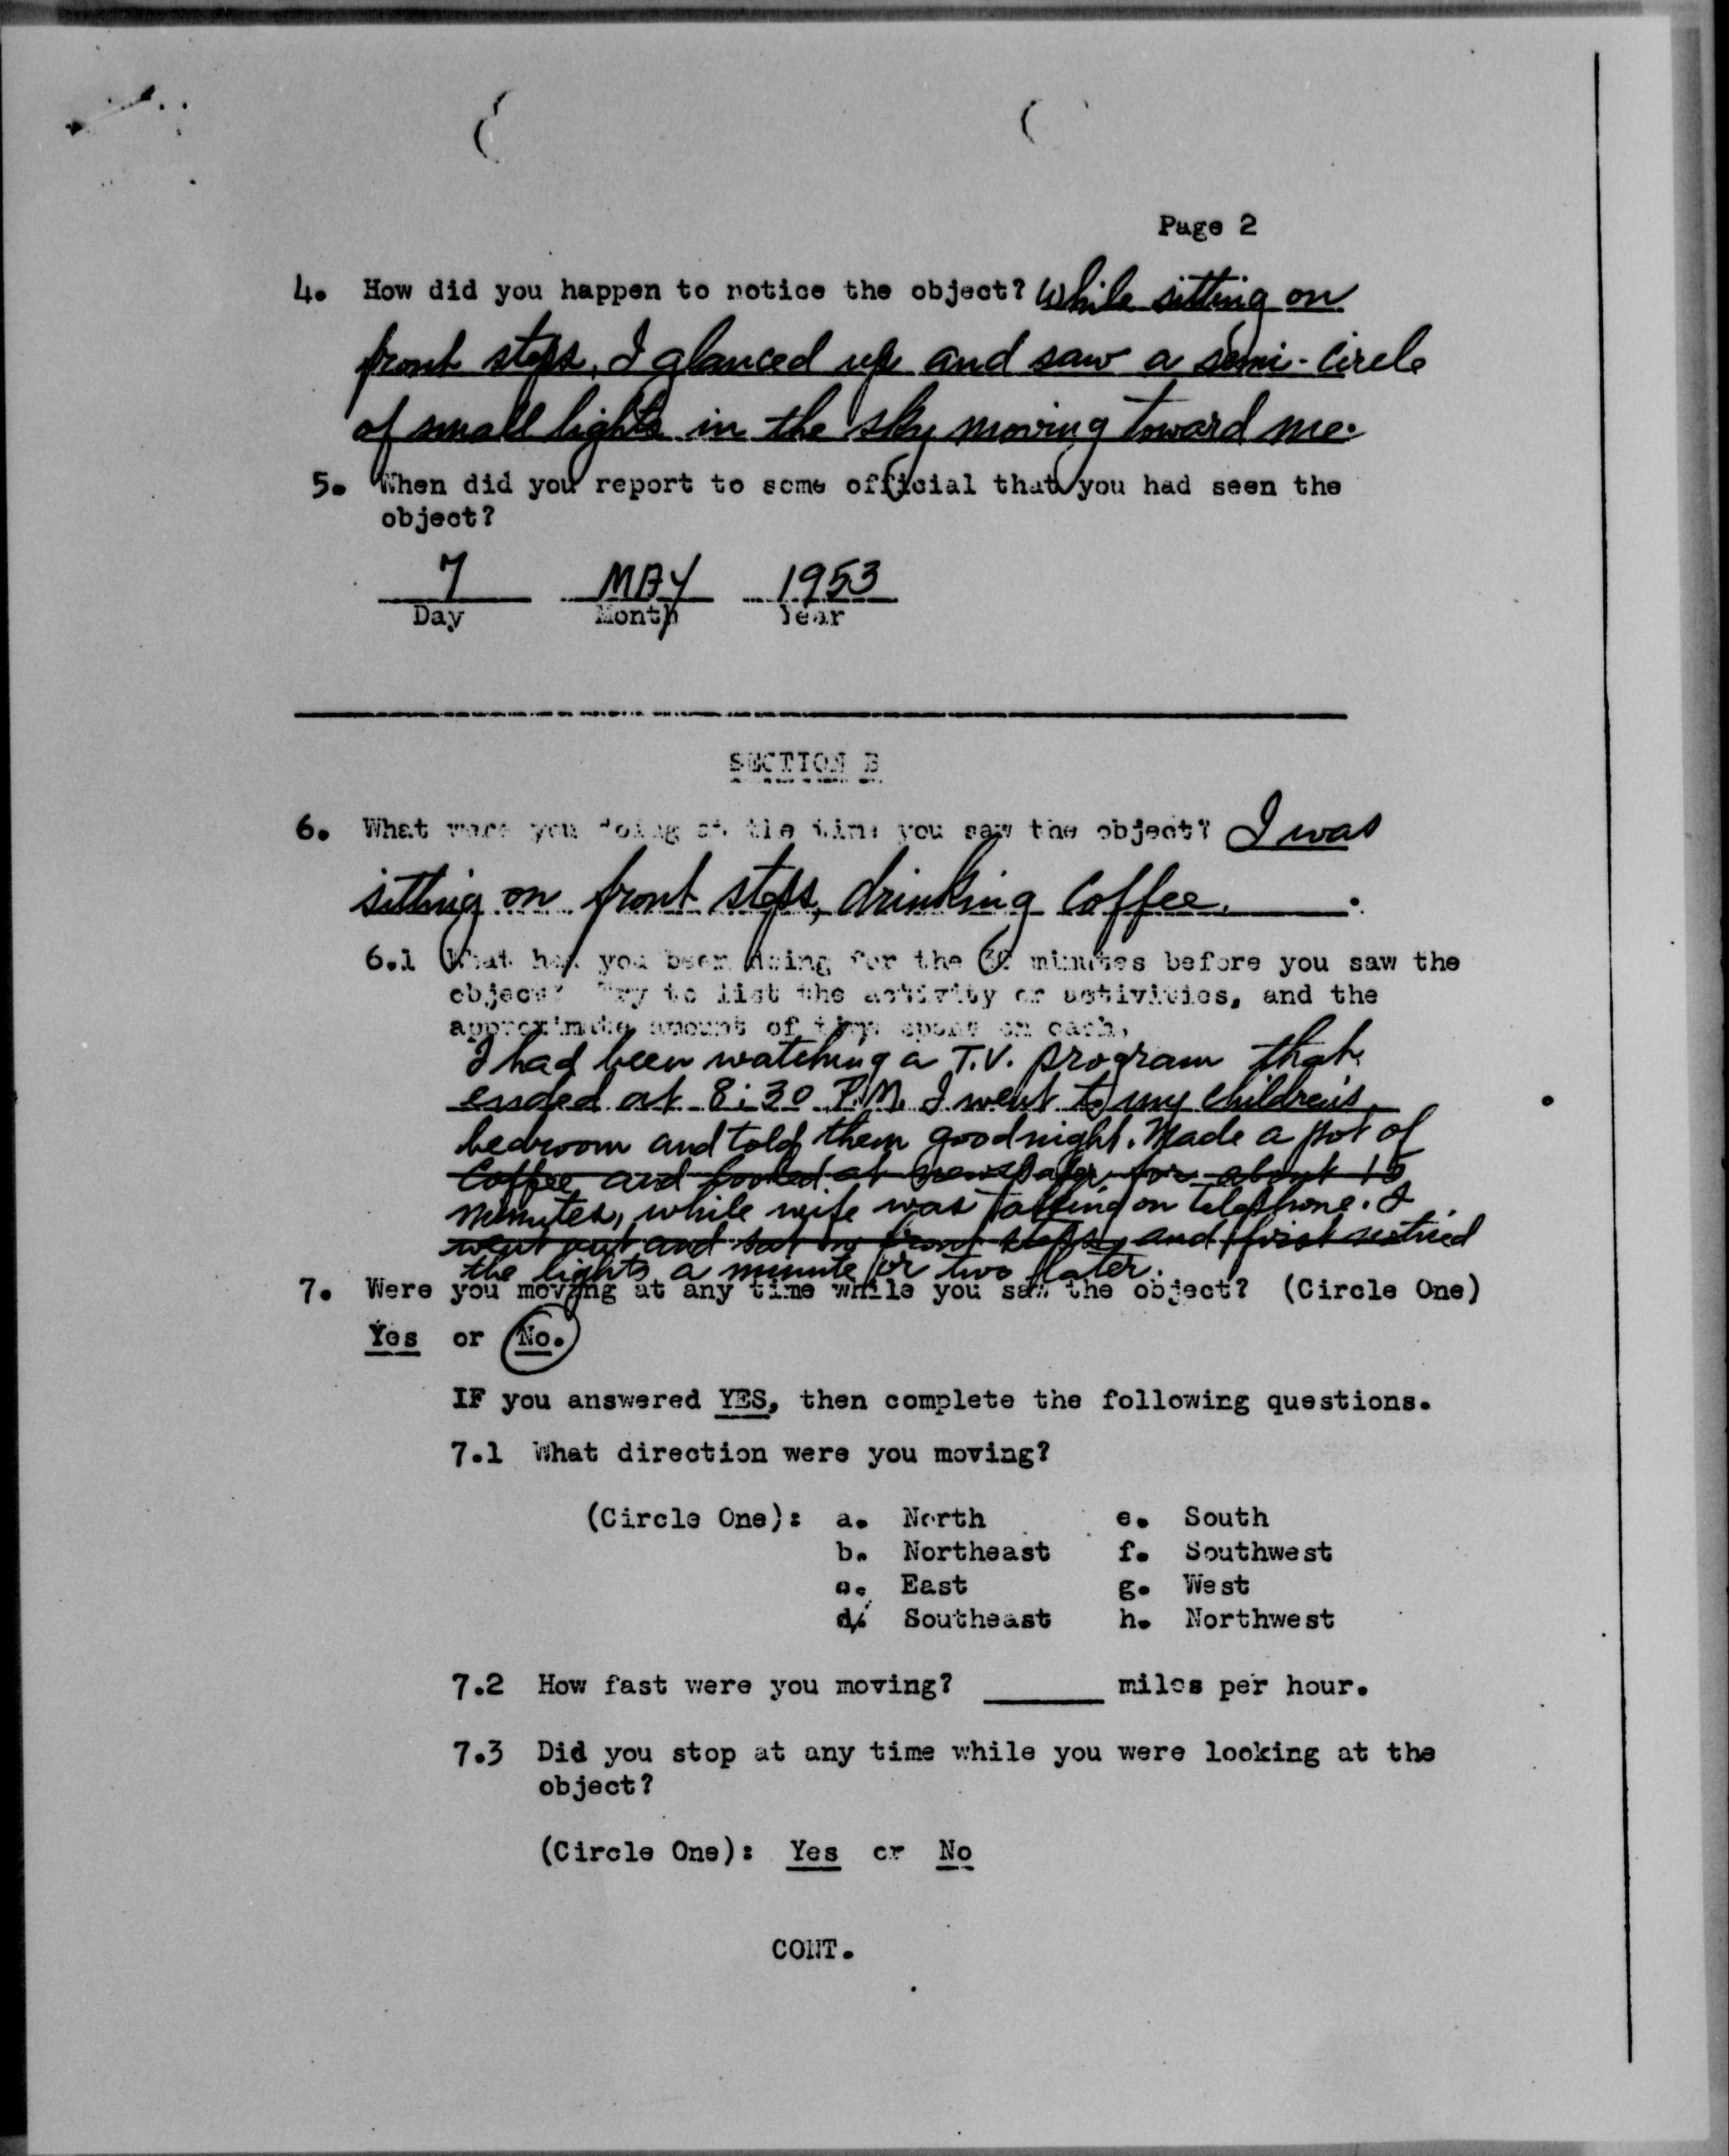 Page 2
4. How did you happen to notice the object? While sitting on
front steps, I glanced up and saw a semi-circle
of small lights in the sky moving toward me.
5. When did you report to some official that you had seen the
object?
7 MAY 1953
Day Month Year
SECTION B
6. What were you doing at the time you saw the object? I was
sitting on front steps, drinking coffee.
6.1 What had you been doing for the 30 minutes before you saw the
object? Try to list the activity or activities, and the
approximate amount of time spent on each.
I had been watching a T.V. program that
ended at 8:30 P.M. I went to my children's
bedroom and told them goodnight. Made a pot of
coffee and looked at newspaper for about 15
minutes, while wife was talking on telephone. I
went out and sat on front steps, and first noticed
the lights a minute or two later.
7. Were you moving at any time while you saw the object? (Circle One)
Yes or No.
IF you answered YES, then complete the following questions.
7.1 What direction were you moving?
(Circle One): a. North e. South
b. Northeast f. Southwest
c. East g. West
d. Southeast h. Northwest
7.2 How fast were you moving? ______ miles per hour.
7.3 Did you stop at any time while you were looking at the
object?
(Circle One): Yes or No
CONT.